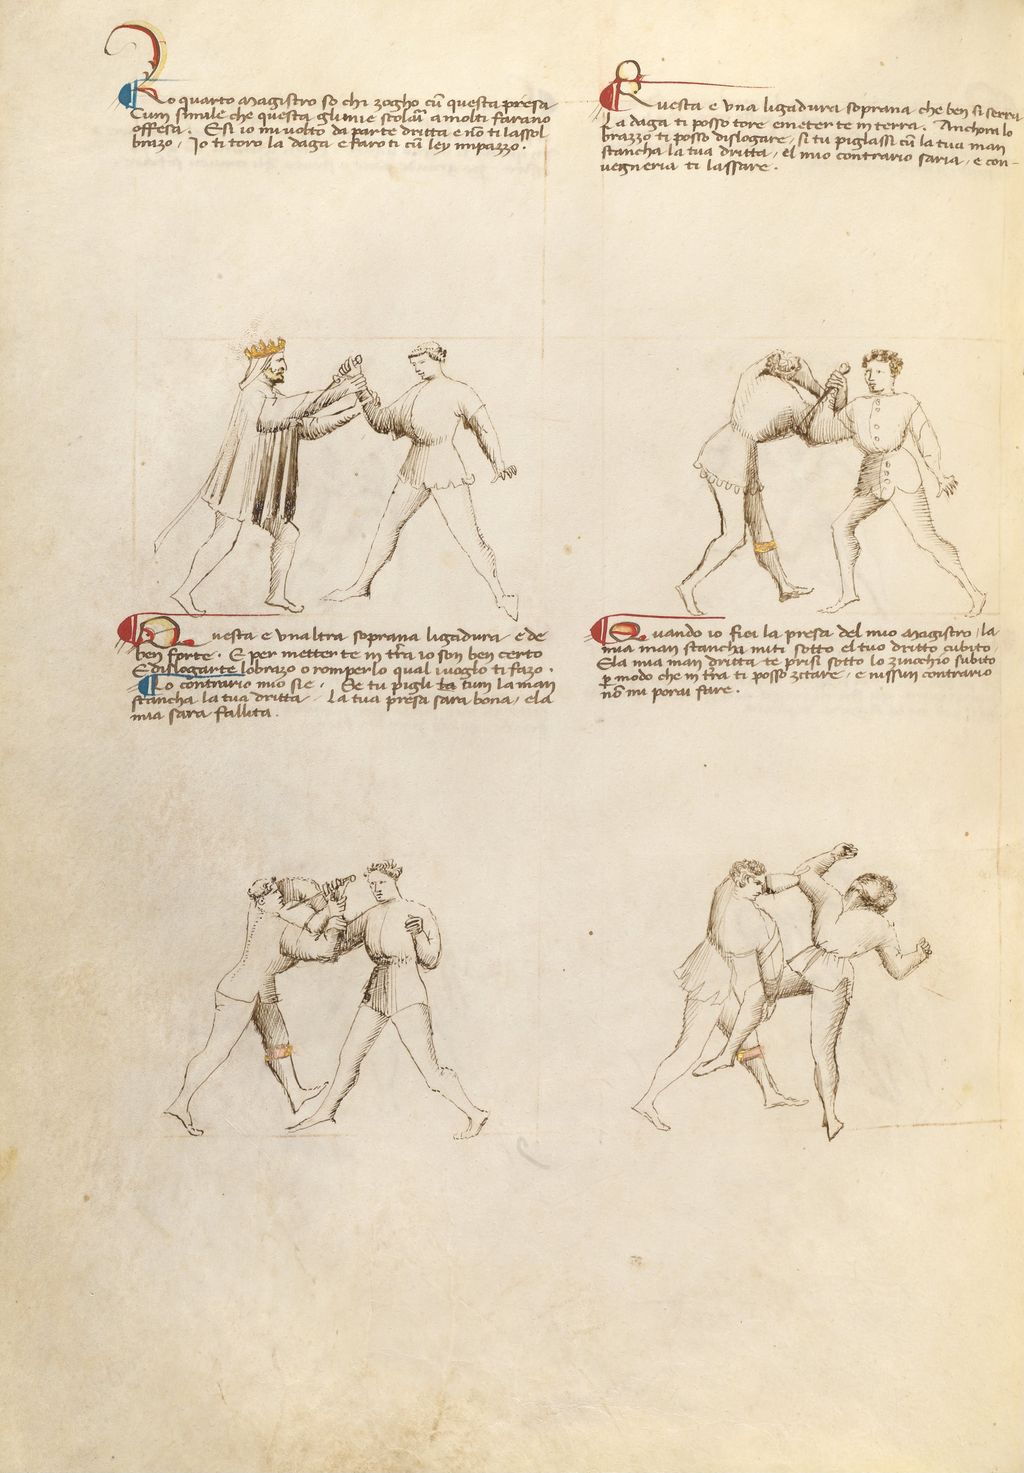 Io quarto magistro so chi zogho cū questa presa
Cum simile che questa gli mie scolari a molti farano
offesa. E si io mi volto da parte dritta e nō ti lassol
brazo, Io ti toro la daga e faroti cū ley impazzo.
Questa e una ligadura soprana che ben si serra
La daga ti posso tore e meter te in terra. Anchora lo
brazzo ti posso dislogare, si tu piglassi cū la tua man
stancha la tua dritta, el mio contrario saria, e con-
vegneria ti lassare.
Questa e unaltra soprana ligadura e de
ben forte. E per metter te in t'ra io son ben certo
E dislogarte lo brazo o romperlo qual i voglo ti fazo.
Lo contrario mio sie. Se tu pigli cum la man
stancha la tua dritta. La tua presa sara bona, e la
mia sara fallita.
Quando io fiei la presa del mio magistro, la
mia man stancha miti sotto el tuo dritto cubito,
E la mia man dritta te prisi sotto lo zinochio subito
p modo che in t'ra ti posso zitare, e nissun contrario
nō mi porai fare.